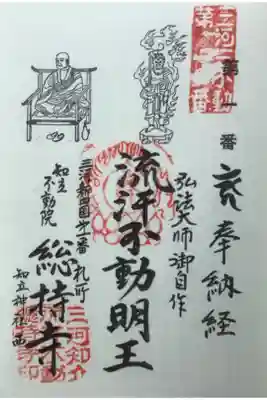 三河
第一番
第一番
奉納経
弘法大師御自作
流汗不動明王
三河新四国第一番札所
知立不動院
総持寺
知立神社西
三河知立
総持寺印